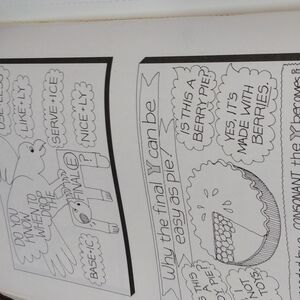 LIKE•LY
SERVE•ICE
NICE•LY
DO YOU
KNOW
WHEN TO
DROP
THE
FINAL E
?
BASE•IC
Why the final Y can be
easy as pie
IS THIS A
BERRY PIE?
YES, IT'S
MADE WITH
BERRIES.
THIS
A PIE?
CONSONANT, the Y becomes